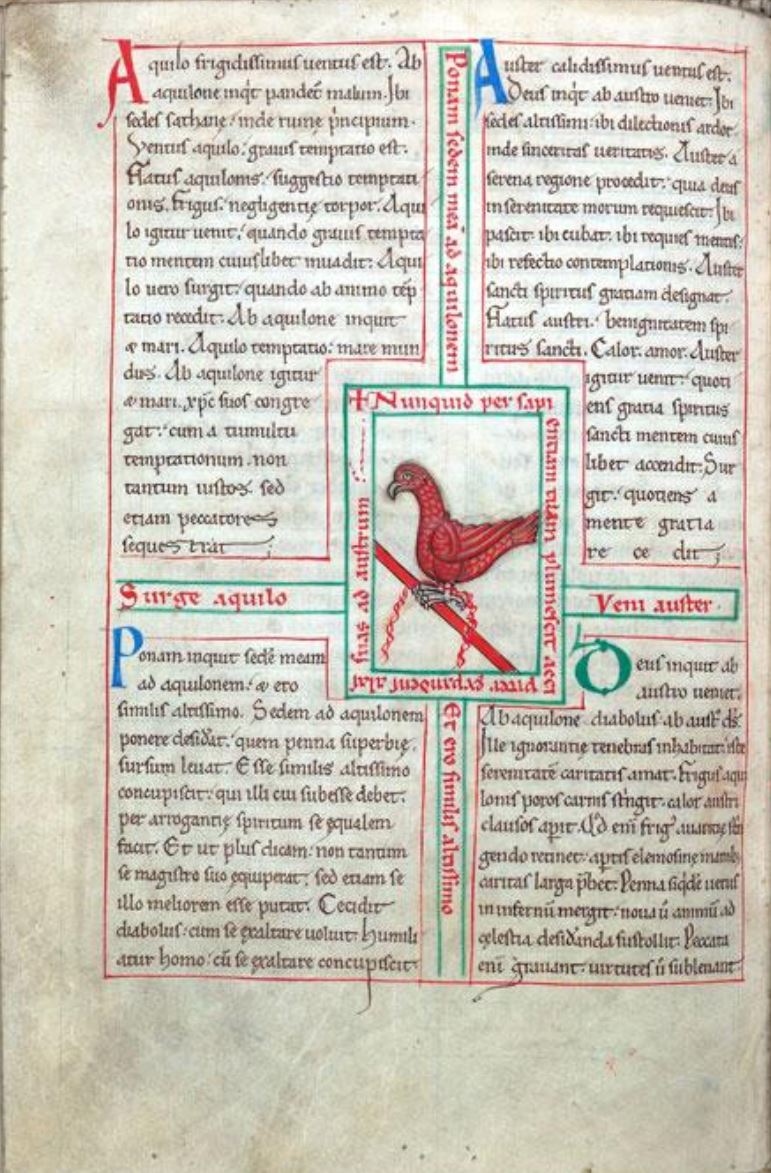 Aquilo frigidissimus uentus est. Ab
aquilone inq̇t pandet̃ malum. Ibi
sedes sathanę: inde ruine p̃ncipium.
Ventus aquilo: grauis temptatio est.
Flatus aquilonis: suggestio temptati
onis. Frigus: negligentię torpor. Aqui
lo igitur uenit: quando grauis tempta
tio mentem cuiuslibet inuadit: Aqui
lo uero surgit: quando ab animo tẽp
tatio recedit: Ab aquilone inquit
& mari. Aquilo temptatio: mare mun
dus. Ab aquilone igitur
& mari. xp̃c suos congre
gat: cum a tumultu
temptationum non
tantum iustos sed
etiam peccatores
sequestrat;
Ponam sedem meã ad aquilonem
Auster calidissimus uentus est.
Deus inq̇t ab austro ueniet: Ibi
sedes altissimi: ibi dilectionis ardor:
inde sinceritas ueritatis. Auster a
serena regione procedit: quia deus
in serenitate morum requiescit: Ibi
pascit: ibi cubat: ibi requies mentis:
ibi refectio contemplationis. Auster
sancti spiritus gratiam designat.
Flatus austri: benignitatem spi
ritus sancti. Calor: amor. Auster
igitur uenit: quoti
ens gratia spiritus
sancti mentem cuius
libet accendit: Sur
git: quotiens a
mente gratia
recedit;
+ Nunquid per sapi
entiam tuam plumescit acci
piter expandens alas
suas ad austrum
Surge aquilo
Veni auster.
Ponam inquit sedẽ meam
ad aquilonem: & ero
similis altissimo. Sedem ad aquilonem
ponere desid̃at: quem penna superbię
sursum leuat: Esse similis altissimo
concupiscit: qui illi cui subesse debet:
per arrogantię spiritum se ęqualem
facit. Et ut plus dicam: non tantum
se magistro suo ęquiperat: sed etiam se
illo meliorem esse putat: Cecidit
diabolus: cum se exaltare uoluit: humili
atur homo: cũ se exaltare concupiscit:
Et ero similis altissimo
Deus inquit ab
austro ueniet:
Ab aquilone diabolus: ab aust̃ d̃s.
Ille ignorantię tenebras inhabitat: iste
serenitatẽ caritatis amat: Frigus aqui
lonis poros carnis st̃ngit: calor austri
clausos ap̃it: Q̃d enĩ frig᾿ auaritię st̃n
gendo retinet: ap̃tis elemosinę manib᾿
caritas larga p̃bet: Penna siq̇dẽ uetus
in infernũ mergit: noua ũ animũ ad
cęlestia desid̃anda sustollit: Peccata
enĩ grauant: uirtutes ũ subleuant: